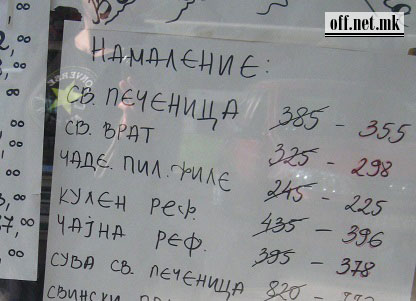 off.net.mk
НАМАЛЕНИЕ:
СВ. ПЕЧЕНИЦА 385 - 355
СВ. ВРАТ 325 - 298
ЧАДЕ. ПИЛ. ФИЛЕ 245 - 225
КУЛЕН РЕФ. 435 - 396
ЧАЈНА РЕФ. 395 - 378
СУВА СВ. ПЕЧЕНИЦА 820 -
СВИНСКИ